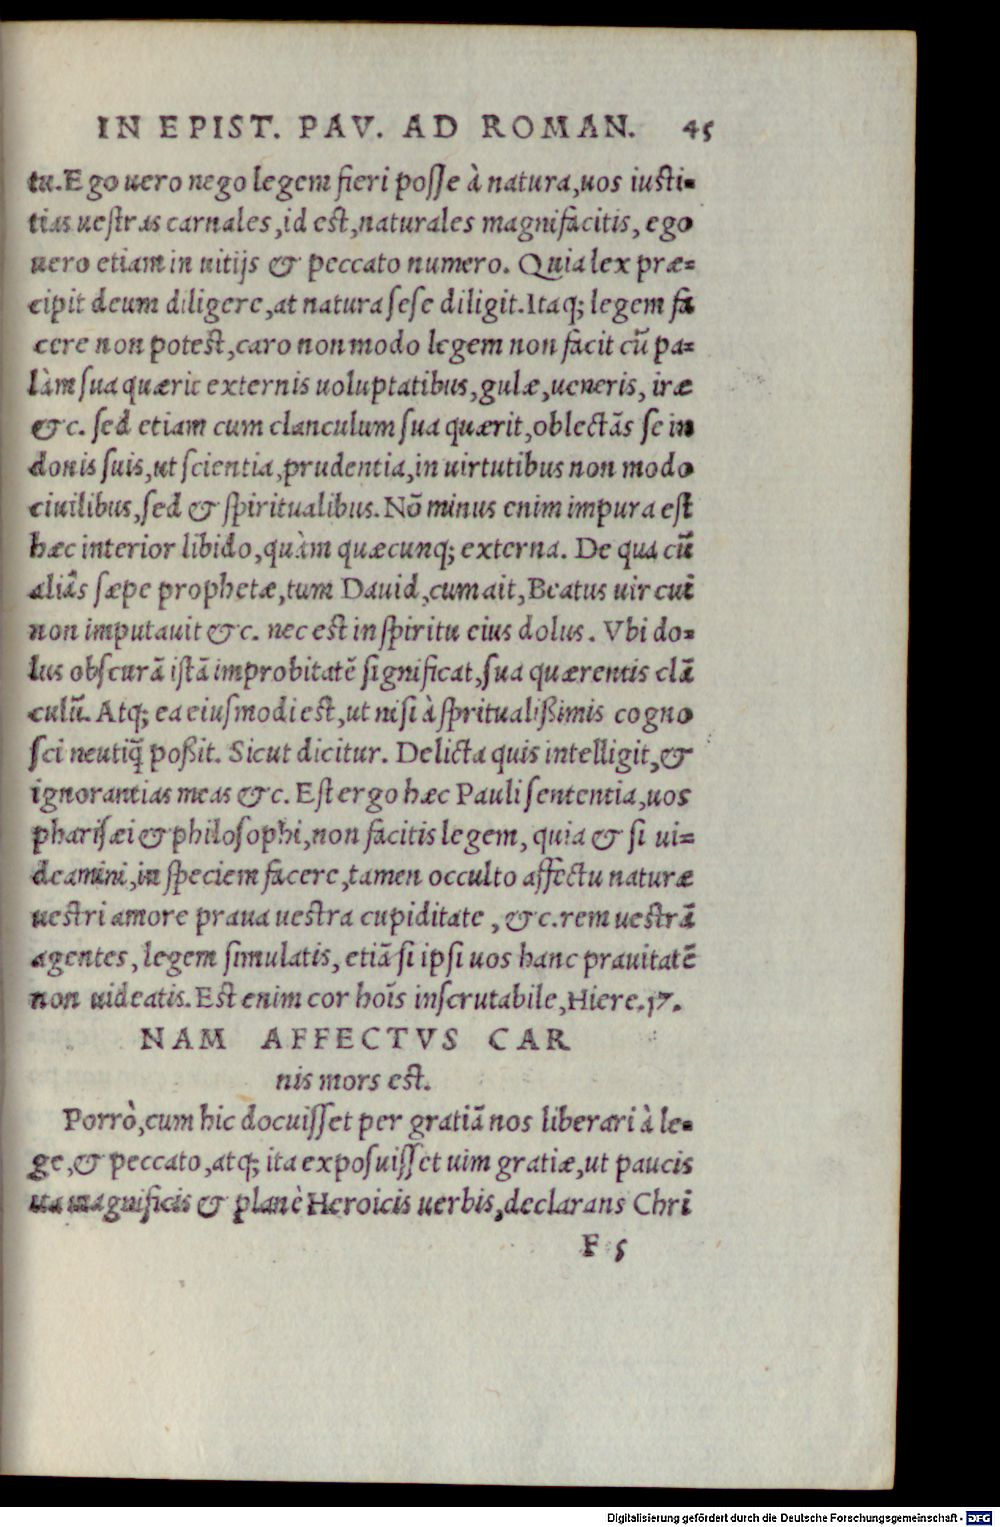 IN EPIST. PAV. AD ROMAN. 45
tu. Ego uero nego legem fieri posse à natura, uos iusti-
tias uestras carnales, id est, naturales magnifacitis, ego
uero etiam in uitijs & peccato numero. Quia lex præ-
cipit deum diligere, at natura sese diligit. Itaq; legem fa
cere non potest, caro non modo legem non facit cũ pa-
làm sua quærit externis uoluptatibus, gulæ, ueneris, iræ
&c. sed etiam cum clanculum sua quærit, oblectãs se in
donis suis, ut scientia, prudentia, in uirtutibus non modo
ciuilibus, sed & spiritualibus. Nõ minus enim impura est
hæc interior libido, quàm quæcunq; externa. De qua cũ
aliâs sæpe prophetæ, tum Dauid, cum ait, Beatus uir cui
non imputauit &c. nec est in spiritu eius dolus. Vbi do-
lus obscurã istã improbitatẽ significat, sua quærentis clã
culũ. Atq; ea eiusmodi est, ut nisi à spritualißimis cogno
sci neutiq̃ poßit. Sicut dicitur. Delicta quis intelligit, &
ignorantias meas &c. Est ergo hæc Pauli sententia, uos
pharisæi & philosophi, non facitis legem, quia & si ui-
deamini, in speciem facere, tamen occulto affectu naturæ
uestri amore praua uestra cupiditate, &c. rem uestrã
agentes, legem simulatis, etiã si ipsi uos hanc prauitatẽ
non uideatis. Est enim cor hoĩs inscrutabile, Hiere. 17.
NAM AFFECTVS CAR
nis mors est.
Porrò, cum hic docuisset per gratiã nos liberari à le-
ge, & peccato, atq; ita exposuisset uim gratiæ, ut paucis
ita magnificis & planè Heroicis uerbis, declarans Chri
F 5
Digitalisierung gefördert durch die Deutsche Forschungsgemeinschaft - DFG